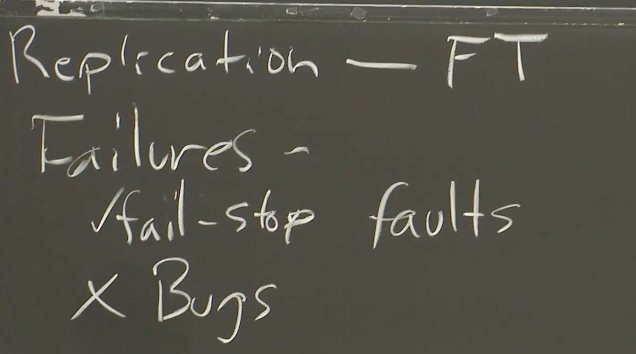 Replication — FT
Failures -
✓fail-stop faults
× Bugs